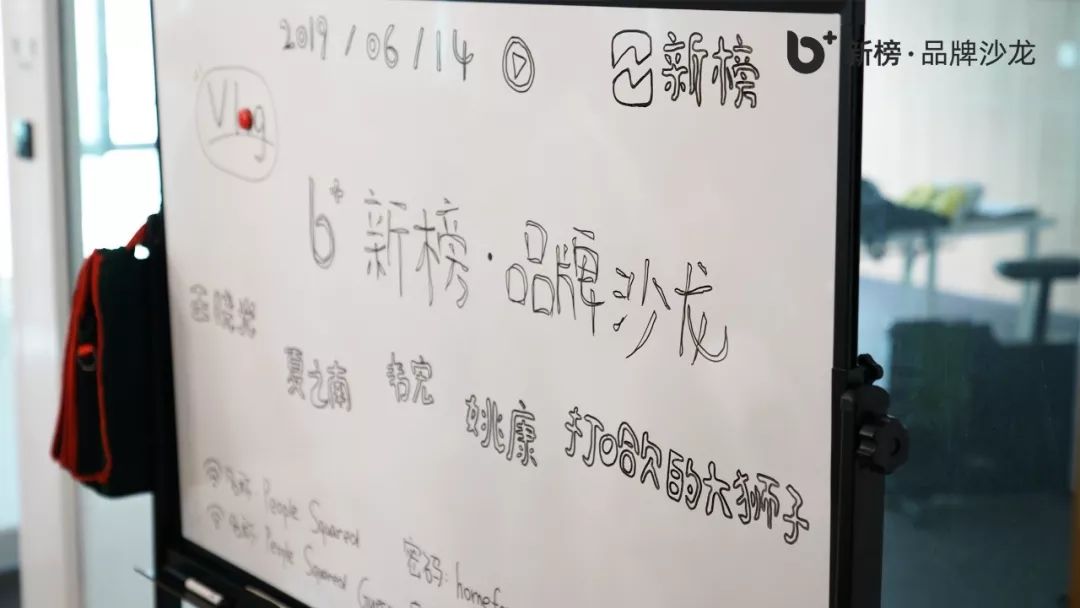 2019/06/14
新榜
b+ 新榜·品牌沙龙
Vlog
b+ 新榜·品牌沙龙
夏之南
韦宏
姚康
打哈欠的大狮子
People Squared
密码:
People Squared